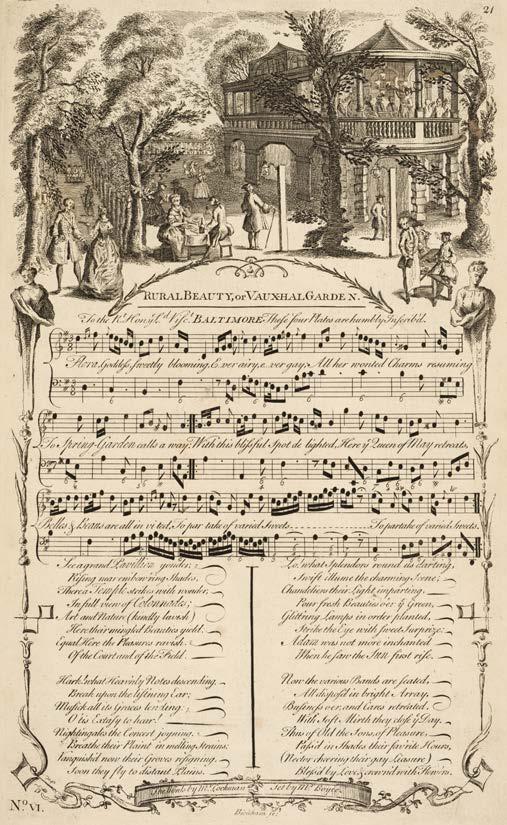 21
RURAL BEAUTY, or VAUXHAL GARDEN.
To the Rt. Honble. Ld. Visct. BALTIMORE These four Plates are humbly Inscrib'd.
Flora, Goddess, sweetly blooming, Ever airy, e..ver gay; All her wonted Charms resuming
To Spring-Garden calls a way; With this blissful Spot de lighted, Here ye Queen of May retreats,
Belles & Beaus are all in vi ted, To par take of varied Sweets To partake of varied Sweets.
See a grand Pavillion yonder,
Rising near embow'ring Shades,
There a Temple strikes with wonder,
In full view of Colonnades;
Art and Nature (kindly lavish)
Here their mingled Beauties yield.
Equal Here the Pleasures ravish
Of the Court and of the Field.
Hark, what Heav'nly Notes descending,
Break upon the list'ning Ear;
Musick all its Graces lending;
O 'tis Extasy to hear!
Nightingales the Concert joyning,
Breathe their Plaint in melting Strains:
Vanquish'd now their Groves resigning,
Soon they fly to distant Plains.
Lo, what Splendors round us darting,
Swift illume the charming Scene;
Chandeliers their Light imparting,
Pour fresh Beauties o'er ye Green,
Glitt'ring Lamps in order planted,
Strike the Eye with sweet Surprize;
Adam was not more inchanted
When he saw the Sun first rise.
Now the various Bands are seated,
All dispos'd in bright Array,
Business o'er, and Cares retreated,
With soft Mirth they close ye Day.
Thus of Old the Sons of Pleasure,
Pass'd in Shades their fav'rite Hours,
(Nectar cheering their gay Leisure)
Bless'd by Love, & crown'd with Flow'rs.
The Words by Mr. Lockman Set by Mr. Boyce.
No. VI.
Bickham sc.